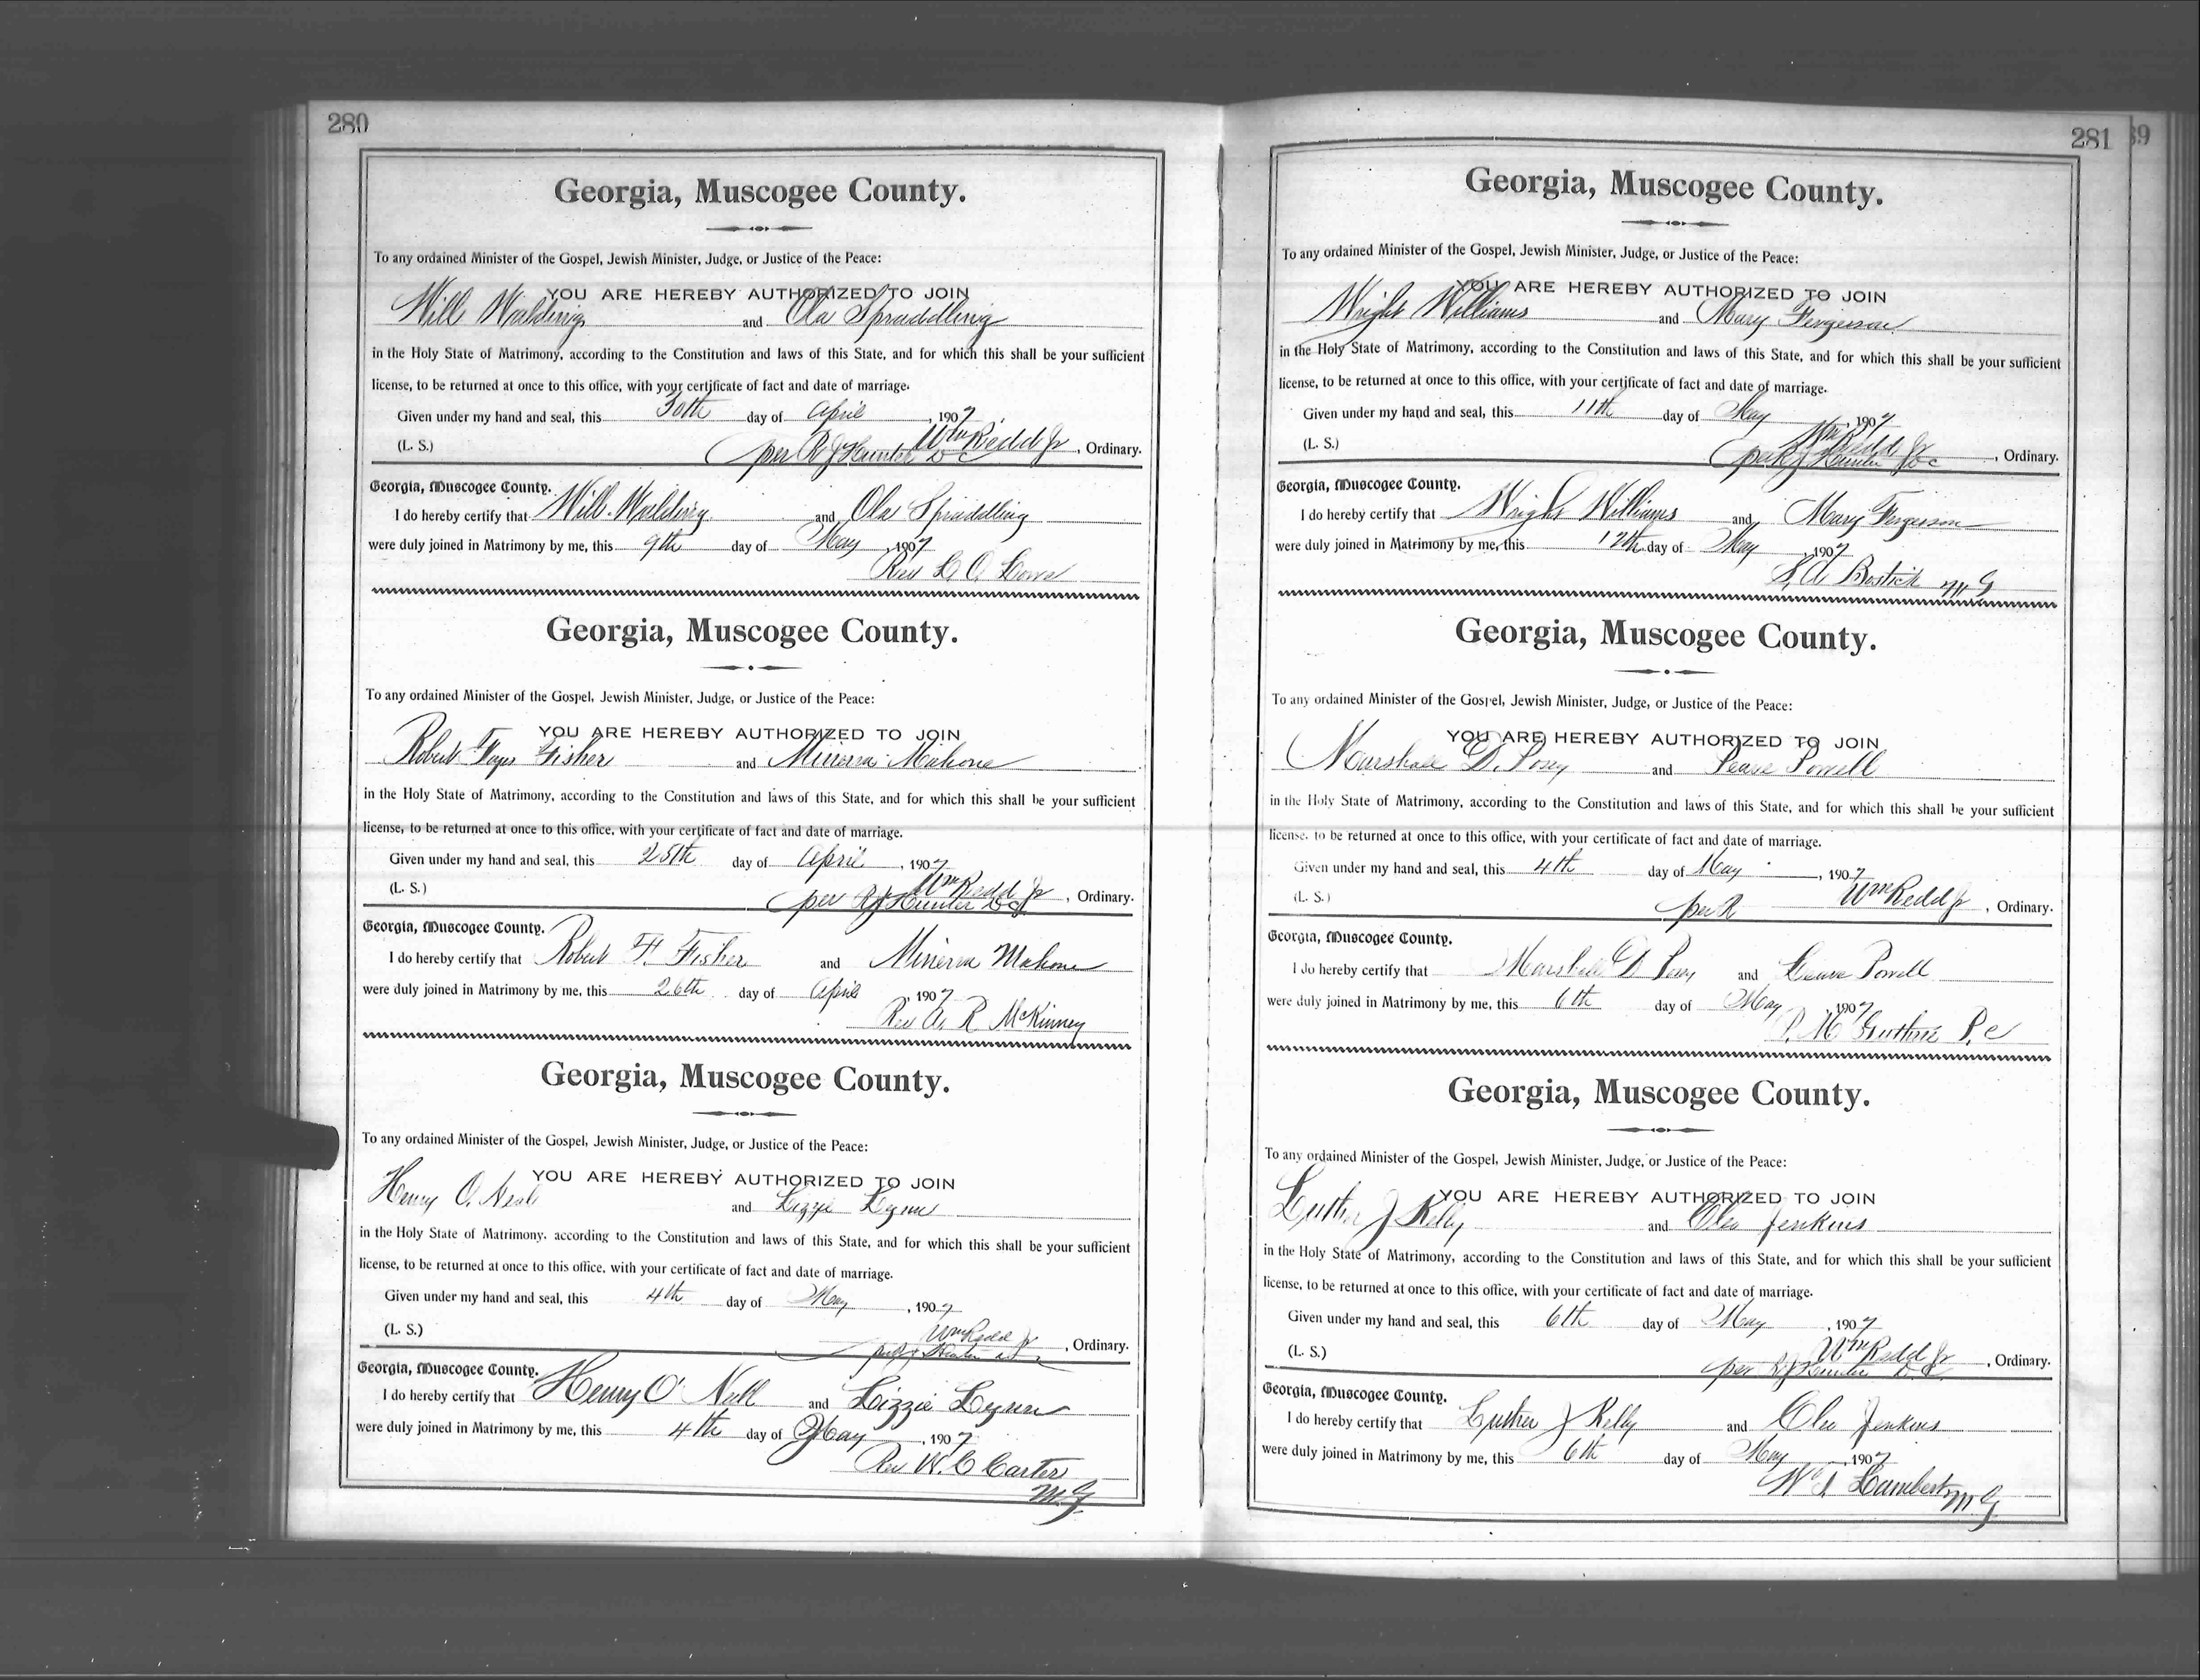 280
Georgia, Muscogee County.
To any ordained Minister of the Gospel, Jewish Minister, Judge, or Justice of the Peace:
YOU ARE HEREBY AUTHORIZED TO JOIN
Will Walding and Ola Spraddling
in the Holy State of Matrimony, according to the Constitution and laws of this State, and for which this shall be your sufficient
license, to be returned at once to this office, with your certificate of fact and date of marriage.
Given under my hand and seal, this 30th day of April, 1907
(L. S.) Wm Redd Jr, Ordinary.
per R J Hunter D C
Georgia, Muscogee County.
I do hereby certify that Will Walding and Ola Spraddling
were duly joined in Matrimony by me, this 9th day of May, 1907
Rev L O
Georgia, Muscogee County.
To any ordained Minister of the Gospel, Jewish Minister, Judge, or Justice of the Peace:
YOU ARE HEREBY AUTHORIZED TO JOIN
Robert Fisher and Minerva Mahone
in the Holy State of Matrimony, according to the Constitution and laws of this State, and for which this shall be your sufficient
license, to be returned at once to this office, with your certificate of fact and date of marriage.
Given under my hand and seal, this 25th day of April, 1907
(L. S.) Wm Redd Jr, Ordinary.
per R J Hunter D C
Georgia, Muscogee County.
I do hereby certify that Robert F. Fisher and Minerva Mahone
were duly joined in Matrimony by me, this 26th day of April, 1907
Rev A. R McKinney
Georgia, Muscogee County.
To any ordained Minister of the Gospel, Jewish Minister, Judge, or Justice of the Peace:
YOU ARE HEREBY AUTHORIZED TO JOIN
Henry O. Neal and Lizzie Lynn
in the Holy State of Matrimony, according to the Constitution and laws of this State, and for which this shall be your sufficient
license, to be returned at once to this office, with your certificate of fact and date of marriage.
Given under my hand and seal, this 4th day of May, 1907
(L. S.) Wm Redd Jr, Ordinary.
per R J Hunter
Georgia, Muscogee County.
I do hereby certify that Henry O' Nell and Lizzie Lynn
were duly joined in Matrimony by me, this 4th day of May, 1907
Rev W. C Carter
M.G.
281
39
Georgia, Muscogee County.
To any ordained Minister of the Gospel, Jewish Minister, Judge, or Justice of the Peace:
YOU ARE HEREBY AUTHORIZED TO JOIN
Wright Williams and Mary Fergerson
in the Holy State of Matrimony, according to the Constitution and laws of this State, and for which this shall be your sufficient
license, to be returned at once to this office, with your certificate of fact and date of marriage.
Given under my hand and seal, this 11th day of May, 1907
(L. S.) Wm Redd Jr, Ordinary.
per R J Hunter D C
Georgia, Muscogee County.
I do hereby certify that Wright Williams and Mary Fergerson
were duly joined in Matrimony by me, this 12th day of May, 1907
S. A Bostick M G
Georgia, Muscogee County.
To any ordained Minister of the Gospel, Jewish Minister, Judge, or Justice of the Peace:
YOU ARE HEREBY AUTHORIZED TO JOIN
Marshall D. Posey and Powell
in the Holy State of Matrimony, according to the Constitution and laws of this State, and for which this shall be your sufficient
license, to be returned at once to this office, with your certificate of fact and date of marriage.
Given under my hand and seal, this 4th day of May, 1907
(L. S.) per R Wm Redd Jr, Ordinary.
Georgia, Muscogee County.
I do hereby certify that Marshall D Posey and Powell
were duly joined in Matrimony by me, this 6th day of May, 1907
P. M Guthrie P. C
Georgia, Muscogee County.
To any ordained Minister of the Gospel, Jewish Minister, Judge, or Justice of the Peace:
YOU ARE HEREBY AUTHORIZED TO JOIN
Luther J Kelly and Cleo Jenkins
in the Holy State of Matrimony, according to the Constitution and laws of this State, and for which this shall be your sufficient
license, to be returned at once to this office, with your certificate of fact and date of marriage.
Given under my hand and seal, this 6th day of May, 1907
(L. S.) Wm Redd Jr, Ordinary.
per R J Hunter D. C.
Georgia, Muscogee County.
I do hereby certify that Luther J Kelly and Cleo Jenkins
were duly joined in Matrimony by me, this 6th day of May, 1907
Lambert M G